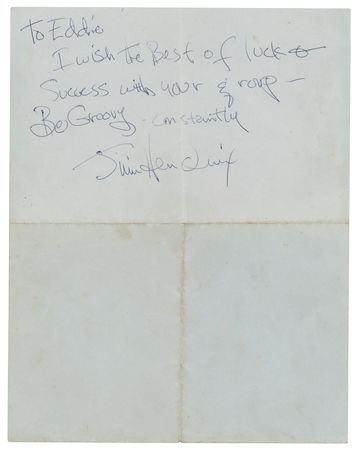 To Eddie
I wish the Best of luck &
Success with your group —
Be Groovy - constantly
Jimi Hendrix